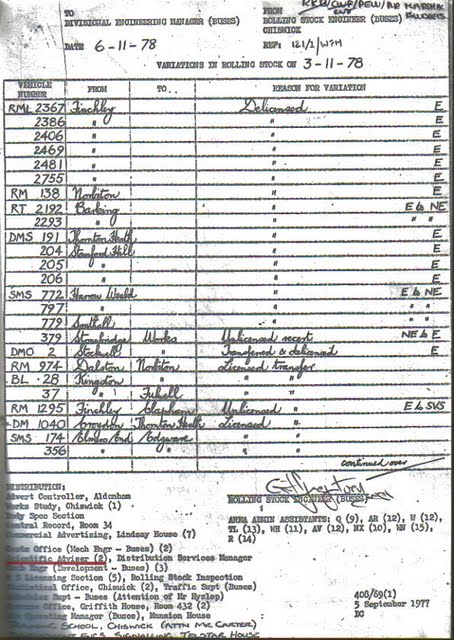 TO FROM
DIVISIONAL ENGINEERING MANAGER (BUSES) ROLLING STOCK ENGINEER (BUSES)
CHISWICK
DATE 6-11-78 REF: 121/1/WFM
VARIATIONS IN ROLLING STOCK ON 3-11-78
VEHICLE NUMBER FROM TO REASON FOR VARIATION
RML 2367 Finchley Delicensed E
2386 " " E
2406 " " E
2469 " " E
2481 " " E
2755 " " E
RM 138 Norbiton " E
RT 2192 Barking " E to NE
2293 " " " "
DMS 191 Thornton Heath " E
204 Stamford Hill " E
205 " " E
206 " " E
SMS 772 Harrow Weald " E to NE
797 " " " "
779 Southall " " "
379 Stonebridge Works Unlicensed recert NE to E
DMO 2 Stockwell " Transfered & delicensed E
RM 974 Dalston Norbiton Licensed transfer
BL 28 Kingston " " "
37 " Fulwell " "
RM 1295 Finchley Clapham Unlicensed " E to SVS
DM 1040 Croydon Thornton Heath Licensed "
SMS 174 Elmers End Edgware " "
356 " " " "
continued over
DISTRIBUTION:
Advert Controller, Aldenham
Works Study, Chiswick (1)
Body Spec Section
Central Record, Room 34
Commercial Advertising, Lindsay House (7)
ROLLING STOCK ENGINEER (BUSES)
AREA ADMIN ASSISTANTS: Q (9), AR (12), W (12),
TL (13), WH (11), AV (12), HX (10), WN (15),
R (14)
Costs Office (Mech Engr - Buses) (2)
Scientific Adviser (2), Distribution Services Manager
Engr (Development - Buses) (3)
Licensing Section (5), Rolling Stock Inspection
Office, Chiswick (2), Traffic Supt (Buses)
Supt - Buses (Attention of Mr Hyslop)
Office, Griffith House, Room 432 (2)
Operating Manager (Buses), Mansion House
SCHOOL, CHISWICK (ATTN MR CARTER)
SIGNALLING, TELSTAR HOUSE
408/69(1)
5 September 1977
DC